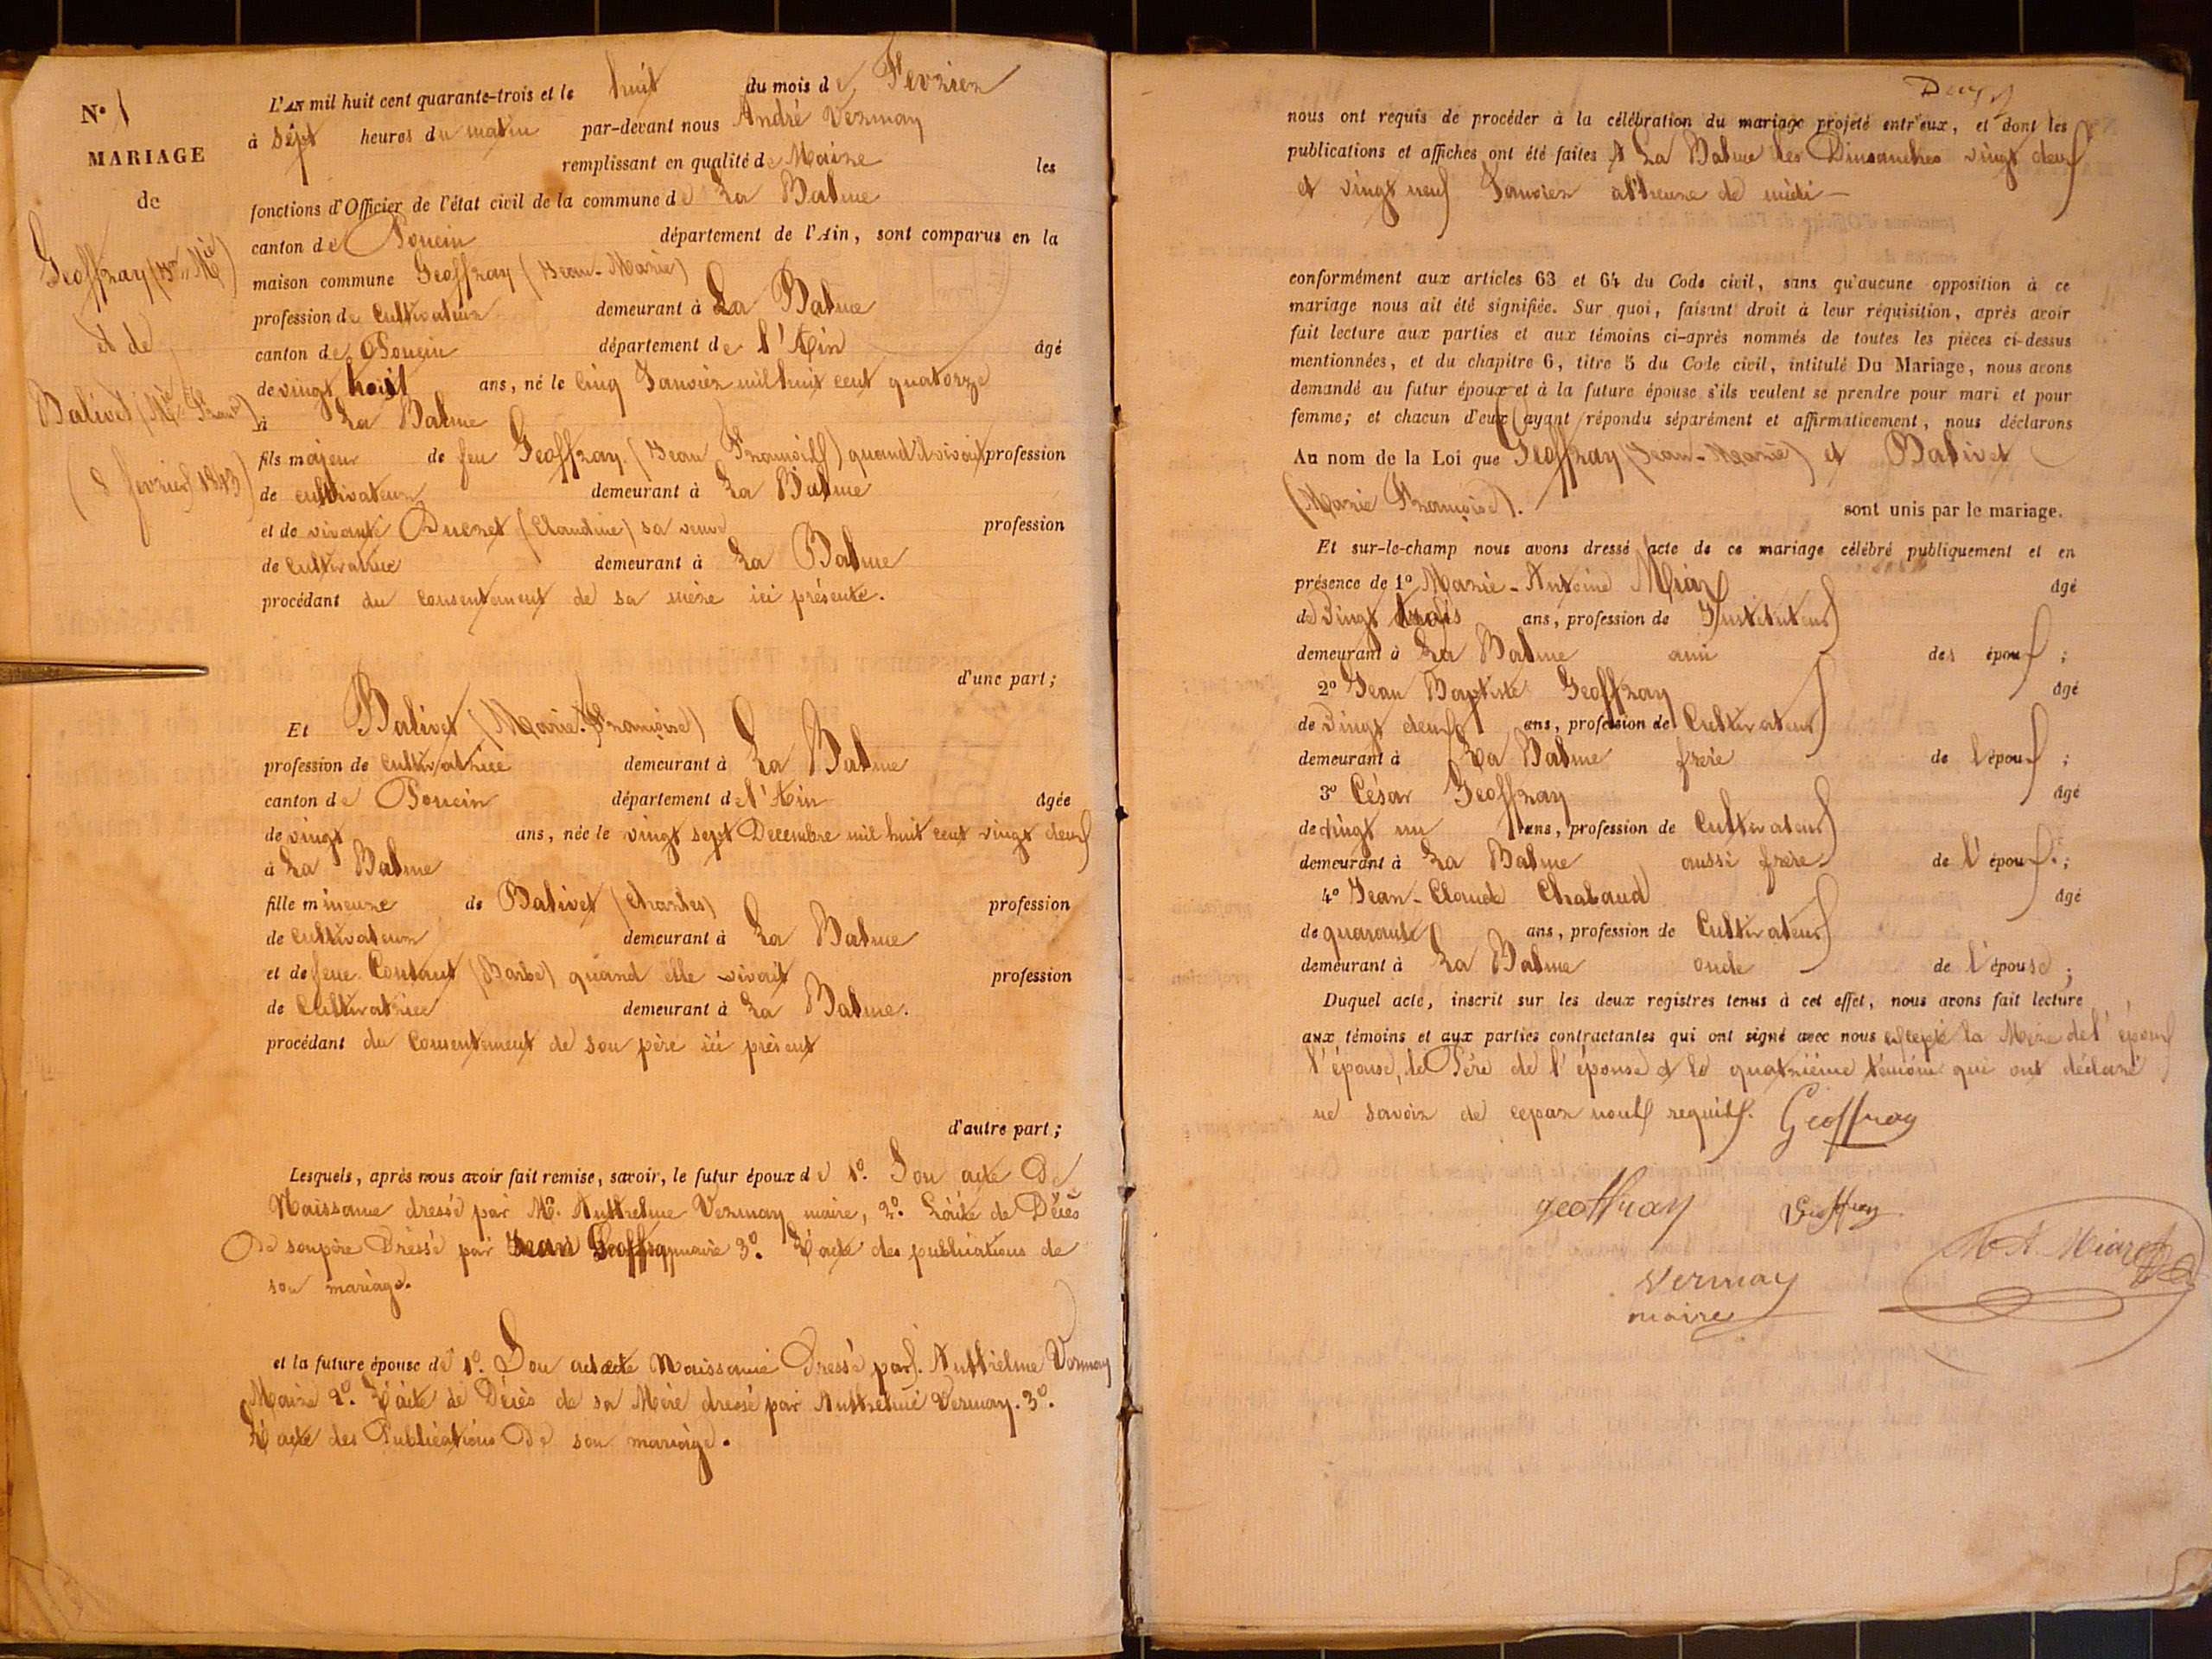 N° 1
MARIAGE
de
Geoffray (Jn Mie)
et de
Balivet (Mie Franse)
(8 février 1843)
L'AN mil huit cent quarante-trois et le huit du mois de Fevrier
à sept heures du matin par-devant nous André Vermay
remplissant en qualité de Maire les
fonctions d'Officier de l'état civil de la commune de La Balme
canton de Poncin département de l'Ain, sont comparus en la
maison commune Geoffray (Jean-Marie)
profession de Cultivateur demeurant à La Balme
canton de Poncin département de l'Ain âgé
de vingt huit ans, né le Cinq Janvier mil huit cent quatorze
à La Balme
fils majeur de feu Geoffray (Jean François) quand il vivait profession
de cultivateur demeurant à La Balme
et de vivante Ducret (Claudine) sa veuve profession
de Cultivatrice demeurant à La Balme
procédant du Consentement de sa mère ici présente.
d'une part;
Et Balivet (Marie-Françoise)
profession de Cultivatrice demeurant à La Balme
canton de Poncin département de l'Ain âgée
de vingt ans, née le vingt sept Decembre mil huit cent vingt deux
à La Balme
fille mineure de Balivet (Charles) profession
de Cultivateur demeurant à La Balme
et de feue Contant (Barbe) quand elle vivait profession
de Cultivatrice demeurant à La Balme.
procédant du Consentement de son père ici présent
d'autre part;
Lesquels, après nous avoir fait remise, savoir, le futur époux de 1°. Son acte De
Naissance dressé par Mr. Anthelme Vermay maire, 2°. L'acte de Décès
De son père Dressé par Jean Geoffray maire 3°. L'acte des publications de
son mariage.
et la future épouse de 1°. Son acte de Naissance Dressé par Anthelme Vermay
Maire 2°. L'acte de Décès de sa Mère dressé par Anthelme Vermay. 3°.
L'acte des Publications De son mariage.
Deux
nous ont requis de procéder à la célébration du mariage projeté entr'eux, et dont les
publications et affiches ont été faites A La Balme les Dimanches vingt deux
et vingt neuf Janvier a l'heure de midi —
conformément aux articles 63 et 64 du Code civil, sans qu'aucune opposition à ce
mariage nous ait été signifiée. Sur quoi, faisant droit à leur réquisition, après avoir
fait lecture aux parties et aux témoins ci-après nommés de toutes les pièces ci-dessus
mentionnées, et du chapitre 6, titre 5 du Code civil, intitulé Du Mariage, nous avons
demandé au futur époux et à la future épouse s'ils veulent se prendre pour mari et pour
femme; et chacun d'eux ayant répondu séparément et affirmativement, nous déclarons
Au nom de la Loi que Geoffray (Jean-Marie) et Balivet
(Marie Françoise). sont unis par le mariage.
Et sur-le-champ nous avons dressé acte de ce mariage célébré publiquement et en
présence de 1° Marie-Antoine Miar âgé
de Vingt trois ans, profession de Instituteur
demeurant à La Balme ami des époux;
2° Jean Baptiste Geoffray âgé
de Vingt deux ans, profession de Cultivateur
demeurant à La Balme frère de l'époux;
3° César Geoffray âgé
de vingt un ans, profession de Cultivateur
demeurant à La Balme aussi frère de l'époux.;
4° Jean-Claude Chabaud âgé
de quarante ans, profession de Cultivateur
demeurant à La Balme oncle de l'épouse;
Duquel acte, inscrit sur les deux registres tenus à cet effet, nous avons fait lecture
aux témoins et aux parties contractantes qui ont signé avec nous excepté la Mère de l'époux
l'épouse, le Père de l'épouse et le quatrième témoin qui ont déclaré
ne savoir de ce par nous requis. Geoffray
geoffray Geoffray
M A. Miar
Vermay
maire